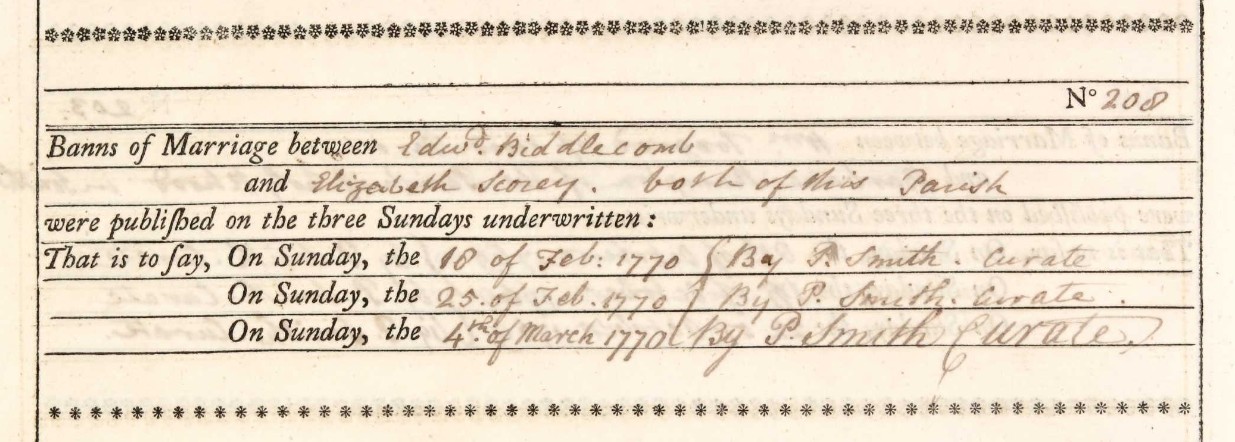 N° 208
Banns of Marriage between Edwd. Biddlecomb
and Elizabeth Scorey. both of this Parish
were publiſhed on the three Sundays underwritten:
That is to ſay, On Sunday, the 18 of Feb: 1770 By P. Smith. Curate
On Sunday, the 25. of Feb. 1770 By P. Smith. Curate.
On Sunday, the 4th. of March 1770 By P. Smith Curate.